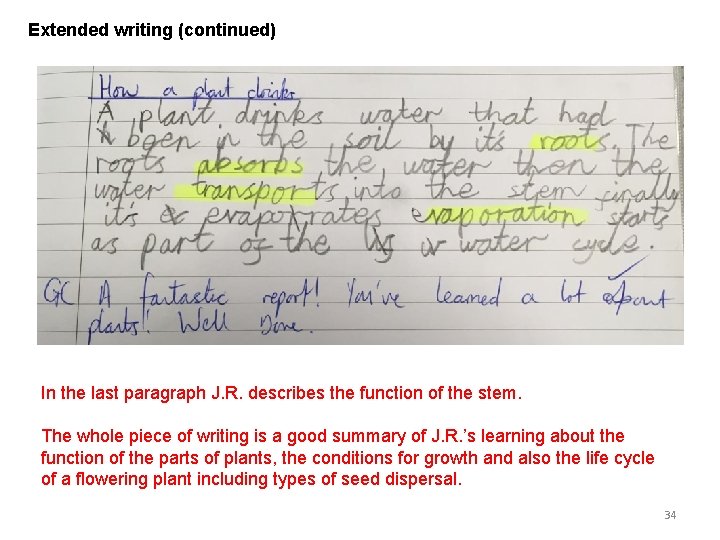 Extended writing (continued)
How a plant drinks
A plant drinks water that had
been in the soil by it's roots. The
roots absorbs the water then the
water transports into the stem finally
it's evaporrates evaporation starts
as part of the water cycle.
GC A fantastic report! You've learned a lot about
plants! Well Done.
In the last paragraph J.R. describes the function of the stem.
The whole piece of writing is a good summary of J.R.’s learning about the
function of the parts of plants, the conditions for growth and also the life cycle
of a flowering plant including types of seed dispersal.
34